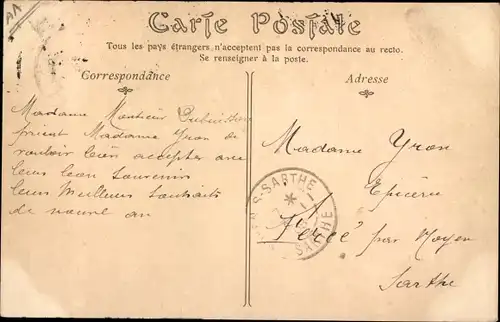 Carte Postale
Tous les pays étrangers n'acceptent pas la correspondance au recto.
Se renseigner à la poste.
Correspondance
Adresse
Madame Monsieur
prient Madame Yron de
vouloir bien accepter avec
leur bon souvenir
leurs meilleurs souhaits
de nouvel an
Madame Yron
Epicerie
par Noyen
Sarthe
S-SARTHE
SARTHE